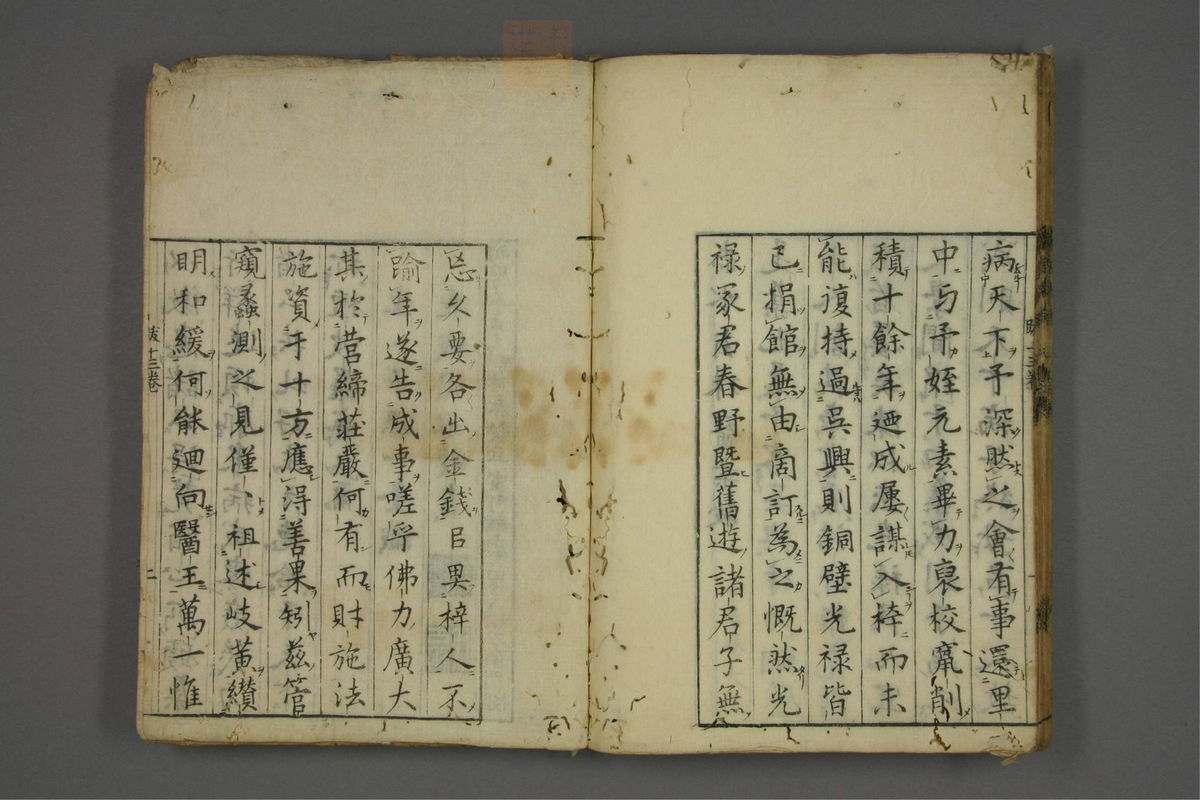 病天下予深然之會有事還里
中与予姪元素畢力裒校竄削
積十餘年廼成屢謀入梓而未
能復持過吳興則銅壁光祿皆
已捐館無由商訂為之慨然光
祿冢君春野暨舊遊諸君子無
忘久要各出金錢㠯畀梓人不
踰年遂告成事嗟乎佛力廣大
其於營締莊嚴何有而財施法
施資于十方應淂善果矧茲管
窺蠡測之見僅僅祖述岐黃纘
明和緩何能廻向醫王萬一惟
跋 十三卷
二